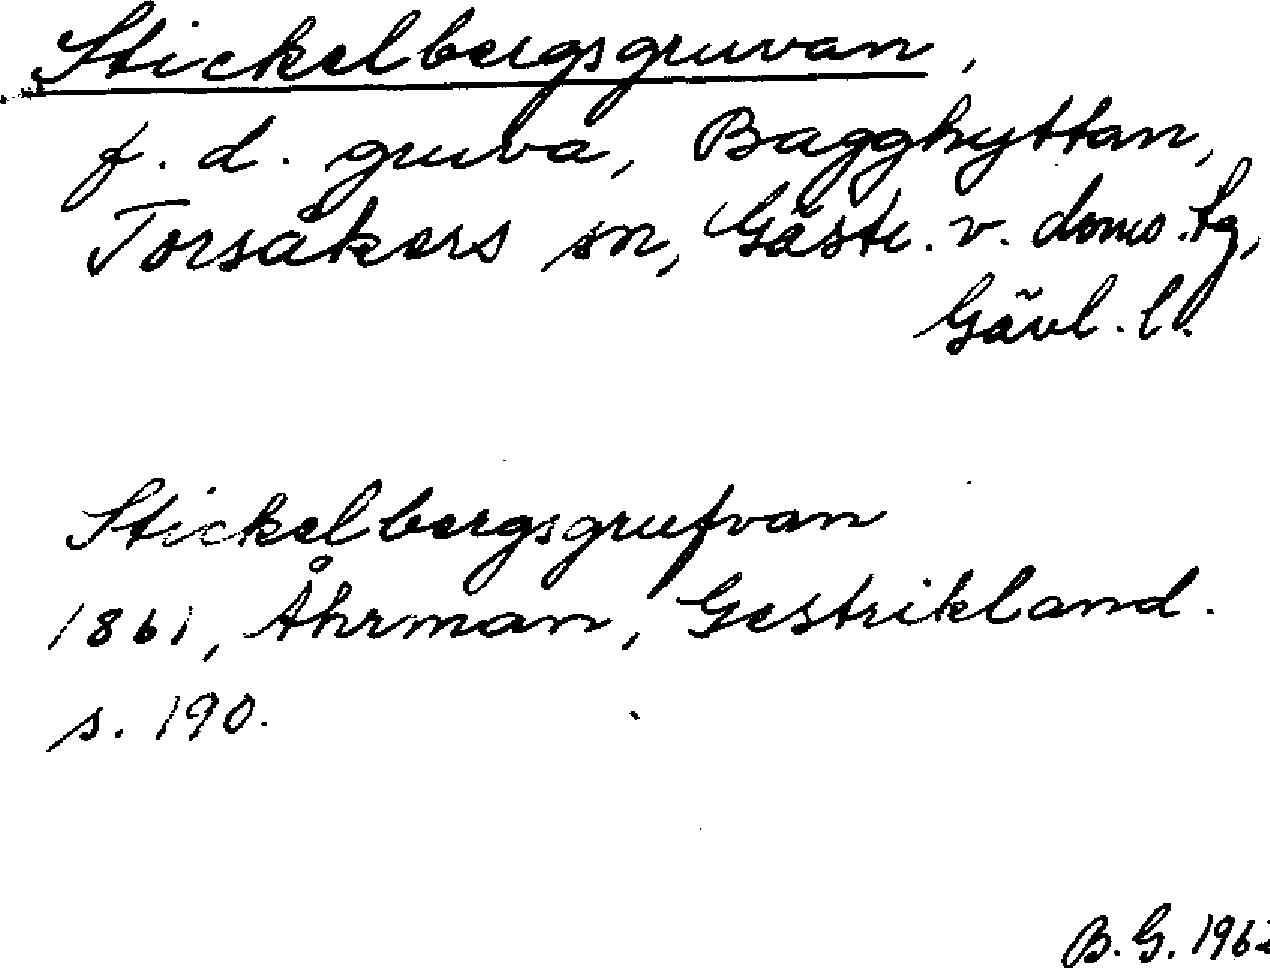 Stickelbergsgruvan,
f. d. gruva, Bagghyttan,
Torsåkers sn, Gästr. v. doms.tg,
Gävl. l.
Stickelbergsgrufvan
1861, Åhrman, Gestrikland.
s. 190.
B.G. 196